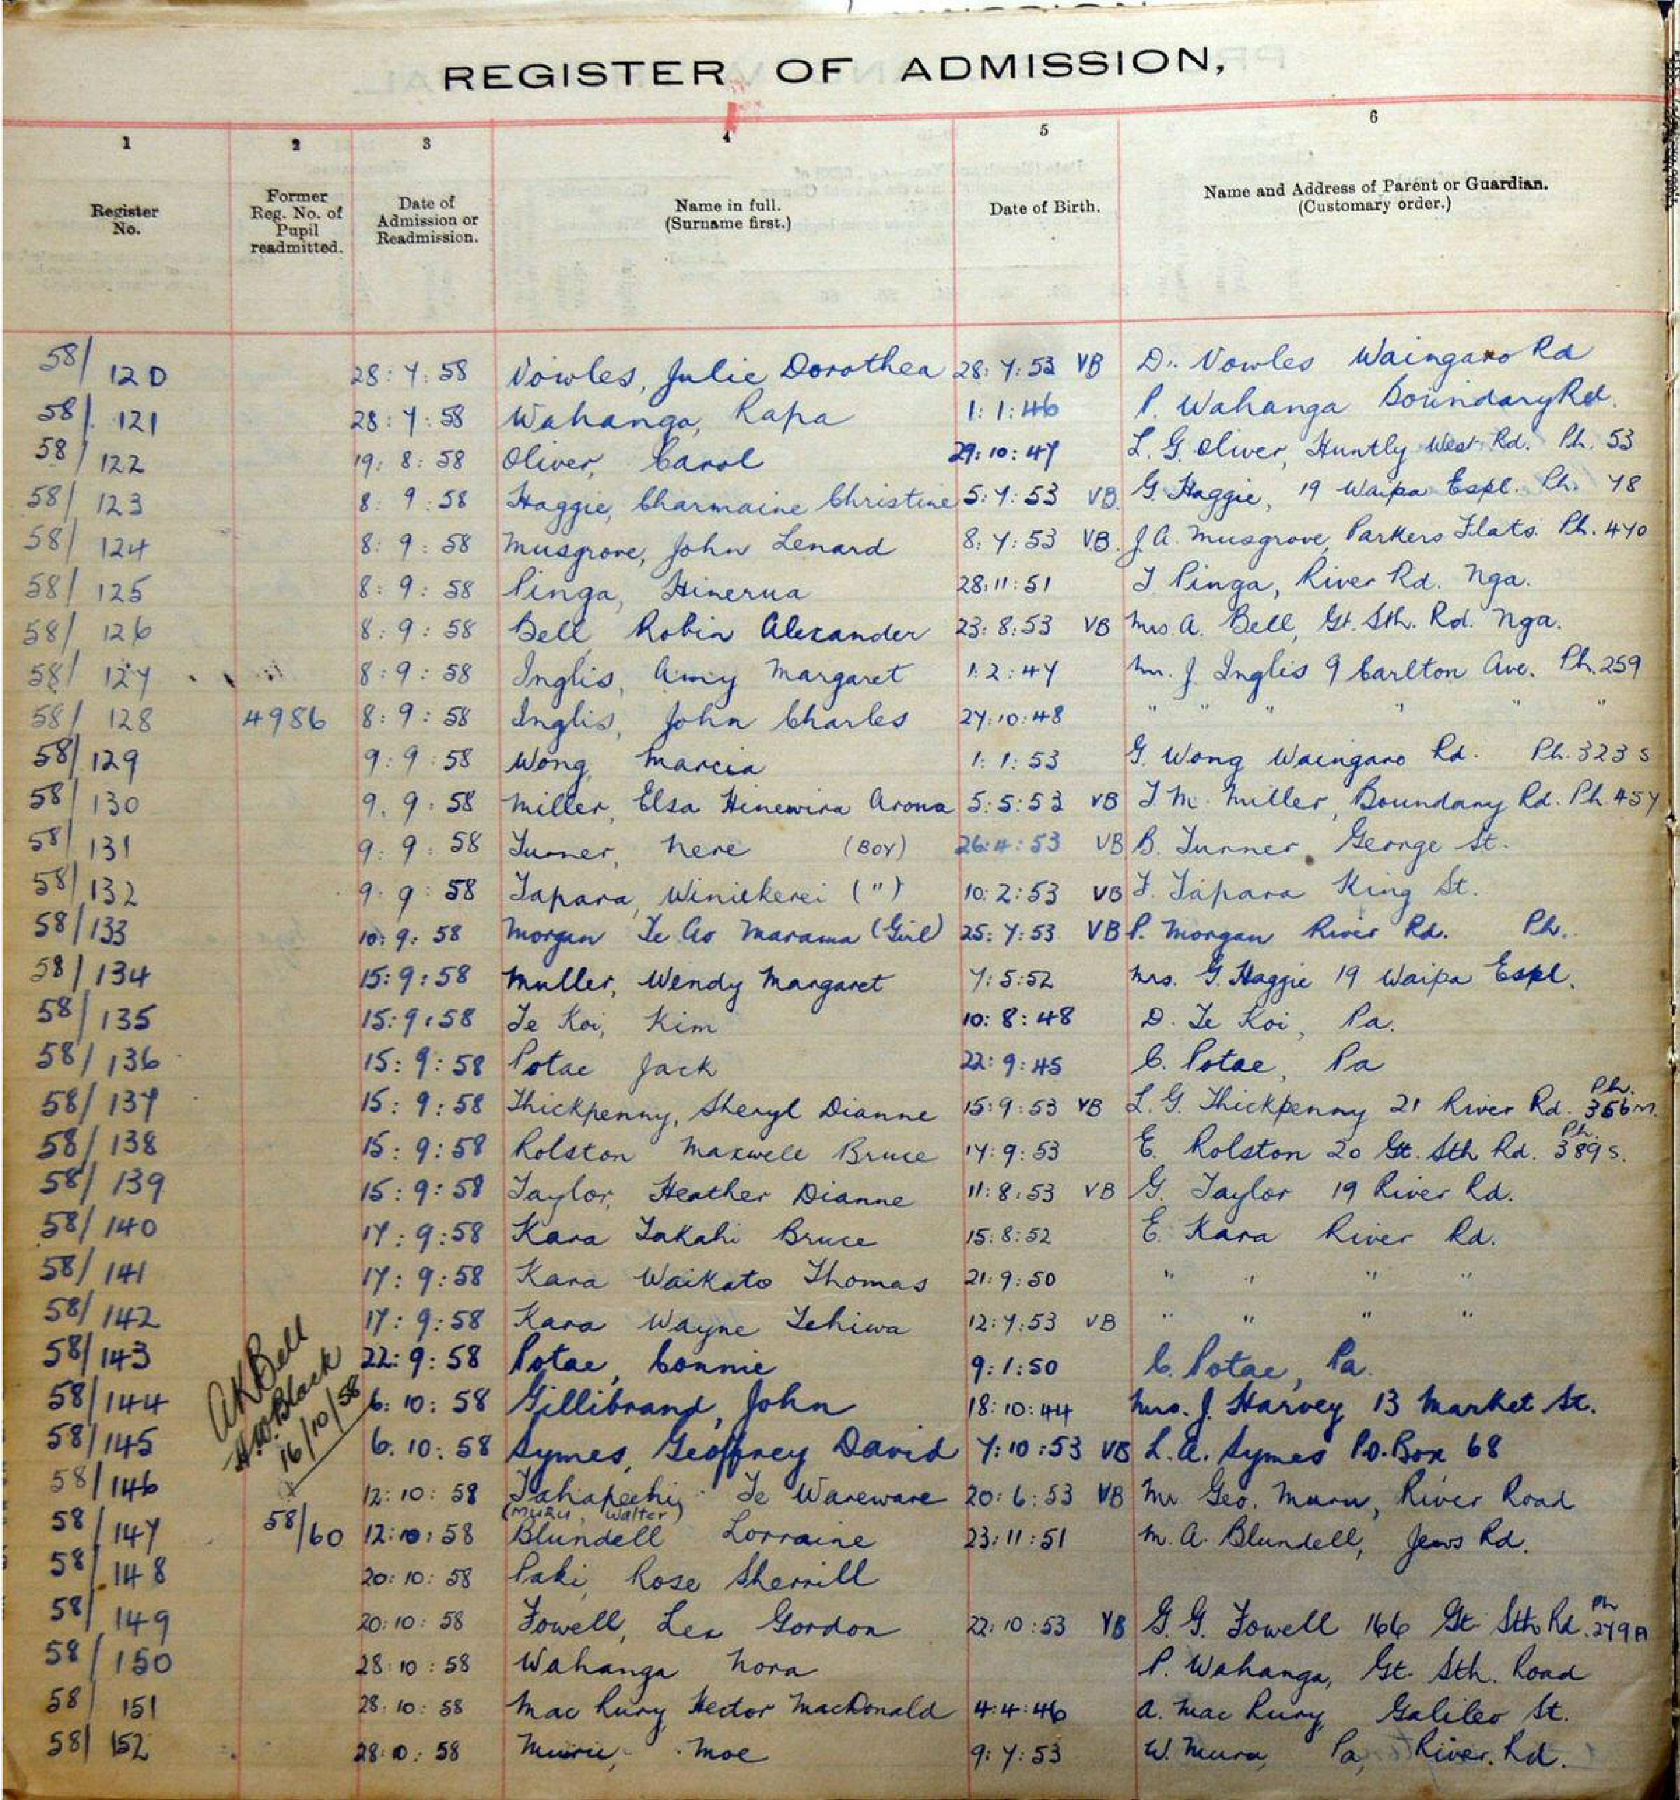 REGISTER OF ADMISSION,
1 2 3 4 5 6
Register No. Former Reg. No. of Pupil readmitted. Date of Admission or Readmission. Name in full. (Surname first.) Date of Birth. Name and Address of Parent or Guardian. (Customary order.)
58/120 28:7:58 Vowles, Julie Dorothea 28:7:53 VB D. Vowles Waingaro Rd
58/121 28:7:58 Wahanga, Rapa 1:1:46 P. Wahanga Boundary Rd.
58/122 19:8:58 Oliver, Carol 29:10:47 L. G. Oliver, Huntly West Rd. Ph. 53
58/123 8:9:58 Haggie, Charmaine Christine 5:7:53 VB G. Haggie, 19 Waipa Espl. Ph. 78
58/124 8:9:58 Musgrove, John Lenard 8:7:53 VB. J. A. Musgrove, Parkers Flats. Ph. 470
58/125 8:9:58 Pinga, Hinerua 28:11:51 T Pinga, River Rd. Nga.
58/126 8:9:58 Bell Robin Alexander 23:8:53 VB Mrs A. Bell, Gt. Sth. Rd. Nga.
58/127 8:9:58 Inglis, Amy Margaret 1:2:47 Mr. J. Inglis 9 Carlton Ave. Ph. 259
58/128 4986 8:9:58 Inglis, John Charles 27:10:48 " " " " " "
58/129 9:9:58 Wong, Marcia 1:1:53 G. Wong Waingaro Rd. Ph. 323 S
58/130 9.9.58 Miller, Elsa Hinewira Arona 5:5:53 VB T. M. Miller, Boundary Rd. Ph. 457
58/131 9:9:58 Turner, Nere (Boy) 26:4:53 VB B. Turner, George St.
58/132 9:9:58 Tapara, Winiekerei (") 10:2:53 VB T. Tapara King St.
58/133 10:9:58 Morgan Te Ao Marama (Girl) 25:7:53 VB P. Morgan River Rd. Ph.
58/134 15:9:58 Muller, Wendy Margaret 7:5:52 Mrs. G. Haggie 19 Waipa Espl.
58/135 15:9:58 Te Koi, Kim 10:8:48 D. Te Koi, Pa.
58/136 15:9:58 Potae Jack 22:9:45 C. Potae, Pa
58/137 15:9:58 Thickpenny, Sheryl Dianne 15:9:53 VB L. G. Thickpenny 21 River Rd. Ph. 356M.
58/138 15:9:58 Rolston Maxwell Bruce 17:9:53 E. Rolston 20 Gt. Sth Rd. Ph. 389 S.
58/139 15:9:58 Taylor, Heather Dianne 11:8:53 VB G. Taylor 19 River Rd.
58/140 17:9:58 Kara Takahi Bruce 15:8:52 E. Kara River Rd.
58/141 17:9:58 Kara Waikato Thomas 21:9:50 " " " "
58/142 17:9:58 Kara Wayne Tehiwa 12:7:53 VB " " " "
58/143 22:9:58 Potae, Connie 9:1:50 C. Potae, Pa.
58/144 6:10:58 Gillibrand, John 18:10:44 Mrs. J. Harvey 13 Market St.
AK Bell
H.W. Black
16/10/58
58/145 6.10:58 Symes, Geoffrey David 7:10:53 VB L. A. Symes P.O. Box 68
58/146 12:10:58 Te Wareware 20:6:53 VB Mr Geo. Muru, River Road
(Muru, Walter)
58/147 58/60 12:10:58 Blundell Lorraine 23:11:51 M. A. Blundell, Jews Rd.
58/148 20:10:58 Paki, Rose Sherrill
58/149 20:10:58 Fowell, Lex Gordon 22:10:53 VB G. G. Fowell 166 Gt. Sth Rd. Ph 279A
58/150 28:10:58 Wahanga Nora P. Wahanga, Gt. Sth. Road
58/151 28:10:58 Mac Rury, Hector MacDonald 4:4:46 A. Mac Rury, Galileo St.
58/152 28:10:58 Moe 9:7:53 W. Muru, Pa, River. Rd.